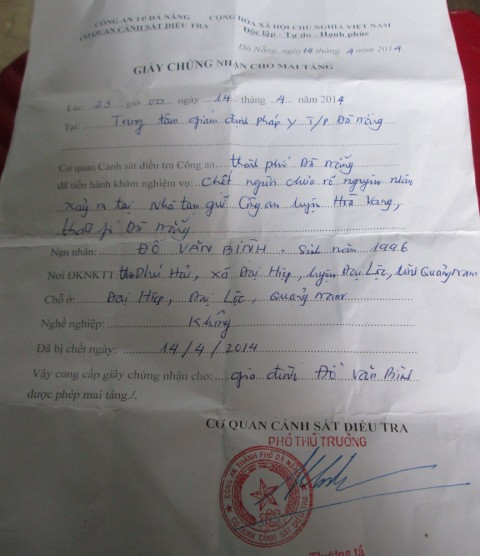 CÔNG AN TP ĐÀ NẴNG
CƠ QUAN CẢNH SÁT ĐIỀU TRA
CỘNG HÒA XÃ HỘI CHỦ NGHĨA VIỆT NAM
Độc lập - Tự do - Hạnh phúc
Đà Nẵng, ngày 14 tháng 4 năm 2014
GIẤY CHỨNG NHẬN CHO MAI TÁNG
Lúc 23 giờ 00 ngày 14 tháng 4 năm 2014
Tại: Trung tâm giám định pháp y T/P Đà Nẵng
Cơ quan Cảnh sát điều tra Công an thành phố Đà Nẵng
đã tiến hành khám nghiệm vụ: Chết người chưa rõ nguyên nhân
xảy ra tại Nhà tạm giữ Công an huyện Hòa Vang,
thành phố Đà Nẵng
Nạn nhân: ĐỖ VĂN BÌNH. Sinh năm 1996
Nơi ĐKNKTT: Phú Hải, xã Đại Hiệp, huyện Đại Lộc, tỉnh Quảng Nam
Chỗ ở: Đại Hiệp, Đại Lộc, Quảng Nam
Nghề nghiệp: Không
Đã bị chết ngày: 14/4/2014
Vậy cung cấp giấy chứng nhận cho: gia đình Đỗ Văn Bình
được phép mai táng./.
CƠ QUAN CẢNH SÁT ĐIỀU TRA
PHÓ THỦ TRƯỞNG
CÔNG AN THÀNH PHỐ ĐÀ NẴNG
CƠ QUAN CẢNH SÁT ĐIỀU TRA
Thượng tá